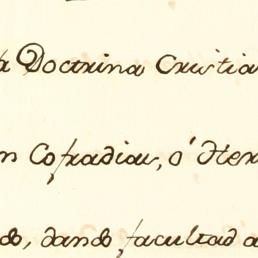 a Doctrina Cristia
n Cofradias, ó Her
do, dando facultad a